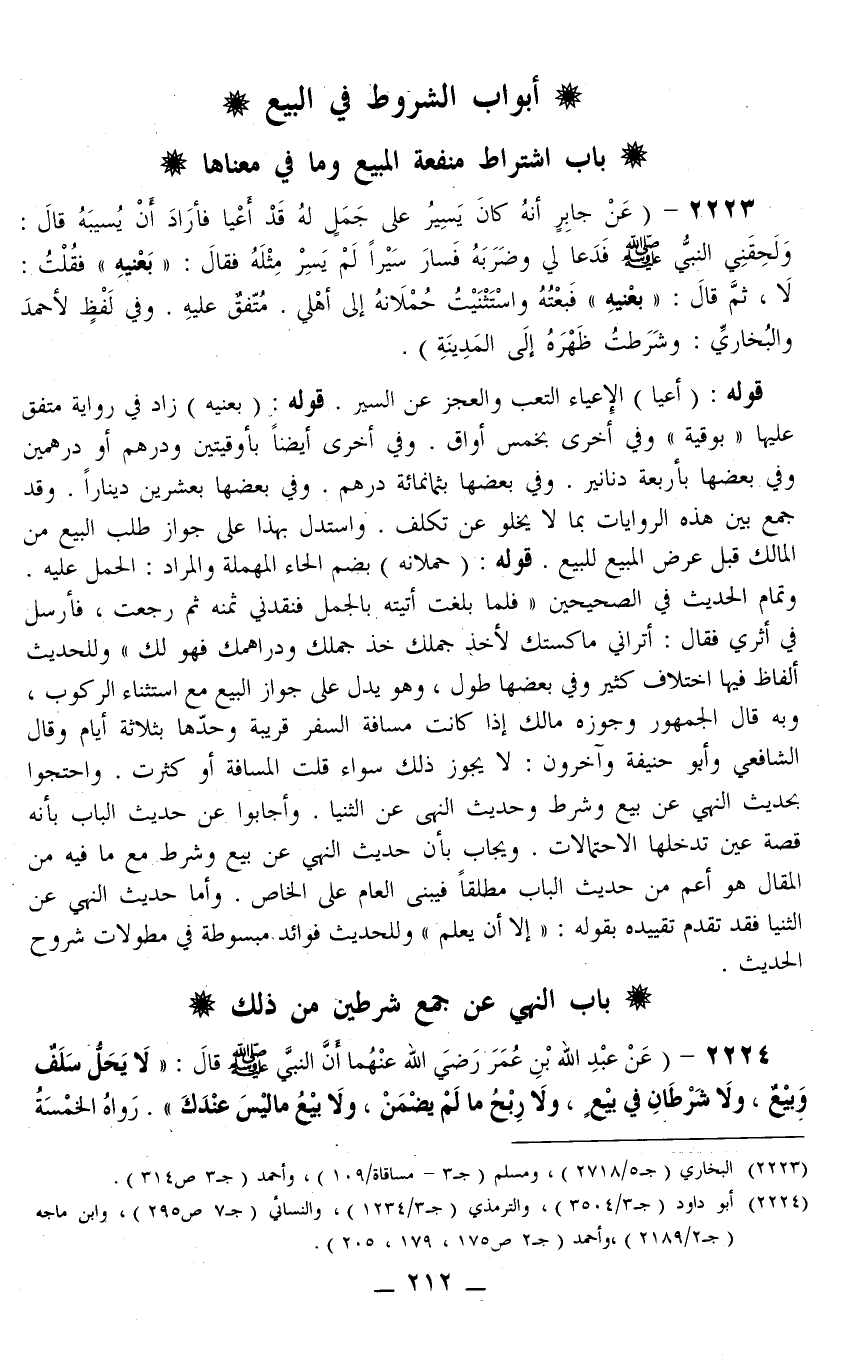 ❋ أبواب الشروط في البيع ❋
❋ باب اشتراط منفعة المبيع وما في معناها ❋
٢٢٢٣ – ( عَنْ جابِرٍ أنهُ كانَ يَسِيرُ على جَمَلٍ لهُ قَدْ أَعْيا فأرَادَ أَنْ يُسيبَهُ قالَ :
وَلَحِقَنِي النبيُّ ﷺ فَدَعا لي وضَرَبَهُ فَسارَ سَيْراً لَمْ يَسِرْ مِثْلَهُ فقالَ : « بَعْنيهِ » فقُلْتُ :
لَا ، ثمَّ قالَ : « بعْنيهِ » فَبعْتُهُ واسْتَثْنَيْتُ حُمْلَانهُ إلى أهْلي . مُتّفقٌ عليهِ . وفي لَفْظٍ لأحمدَ
والبُخاريِّ : وشَرَطتُ ظَهْرَهُ إلَى المَدِينَةِ ) .
قوله : ( أعيا ) الإعياء التعب والعجز عن السير . قوله : ( بعنيه ) زاد في رواية متفق
عليها « بوقية » وفي أخرى بخمس أواق . وفي أخرى أيضاً بأوقيتين ودرهم أو درهمين
وفي بعضها بأربعة دنانير . وفي بعضها بثمانمائة درهم . وفي بعضها بعشرين ديناراً . وقد
جمع بين هذه الروايات بما لا يخلو عن تكلف . واستدل بهذا على جواز طلب البيع من
المالك قبل عرض المبيع للبيع . قوله : ( حملانه ) بضم الحاء المهملة والمراد : الحمل عليه .
وتمام الحديث في الصحيحين « فلما بلغت أتيته بالجمل فنقدني ثمنه ثم رجعت ، فأرسل
في أثري فقال : أتراني ماكستك لأخذ جملك خذ جملك ودراهمك فهو لك » وللحديث
ألفاظ فيها اختلاف كثير وفي بعضها طول ، وهو يدل على جواز البيع مع استثناء الركوب ،
وبه قال الجمهور وجوزه مالك إذا كانت مسافة السفر قريبة وحدّها بثلاثة أيام وقال
الشافعي وأبو حنيفة وآخرون : لا يجوز ذلك سواء قلت المسافة أو كثرت . واحتجوا
بحديث النهي عن بيع وشرط وحديث النهي عن الثنيا . وأجابوا عن حديث الباب بأنه
قصة عين تدخلها الاحتمالات . ويجاب بأن حديث النهي عن بيع وشرط مع ما فيه من
المقال هو أعم من حديث الباب مطلقاً فيبنى العام على الخاص . وأما حديث النهي عن
الثنيا فقد تقدم تقييده بقوله : « إلا أن يعلم » وللحديث فوائد مبسوطة في مطولات شروح
الحديث .
❋ باب النهي عن جمع شرطين من ذلك ❋
٢٢٢٤ – ( عَنْ عبْدِ الله بْنِ عُمَرَ رَضيَ الله عنْهُما أنَّ النبيَّ ﷺ قالَ : « لَا يَحَلُّ سَلَفٌ
وَبَيْعٌ ، ولَا شَرْطَانِ في بَيْعٍ ، ولَا رِبْحُ ما لَمْ يضْمَنْ ، ولَا بيْعُ ماليْسَ عنْدَكَ » . رَواهُ الخمْسَةُ
(٢٢٢٣) البخاري ( جـ٢٧١٨/٥ ) ، ومسلم ( جـ٣ – مساقاة/١٠٩ ) ، وأحمد ( جـ٣ ص٣١٤ ) .
(٢٢٢٤) أبو داود ( جـ٣٥٠٤/٣ ) ، والترمذي ( جـ١٢٣٤/٣ ) ، والنسائي ( جـ٧ ص٢٩٥ ) ، وابن ماجه
( جـ٢١٨٩/٢ ) ،وأحمد ( جـ٢ ص١٧٥ ، ١٧٩ ، ٢٠٥ ) .
– ٢١٢ –